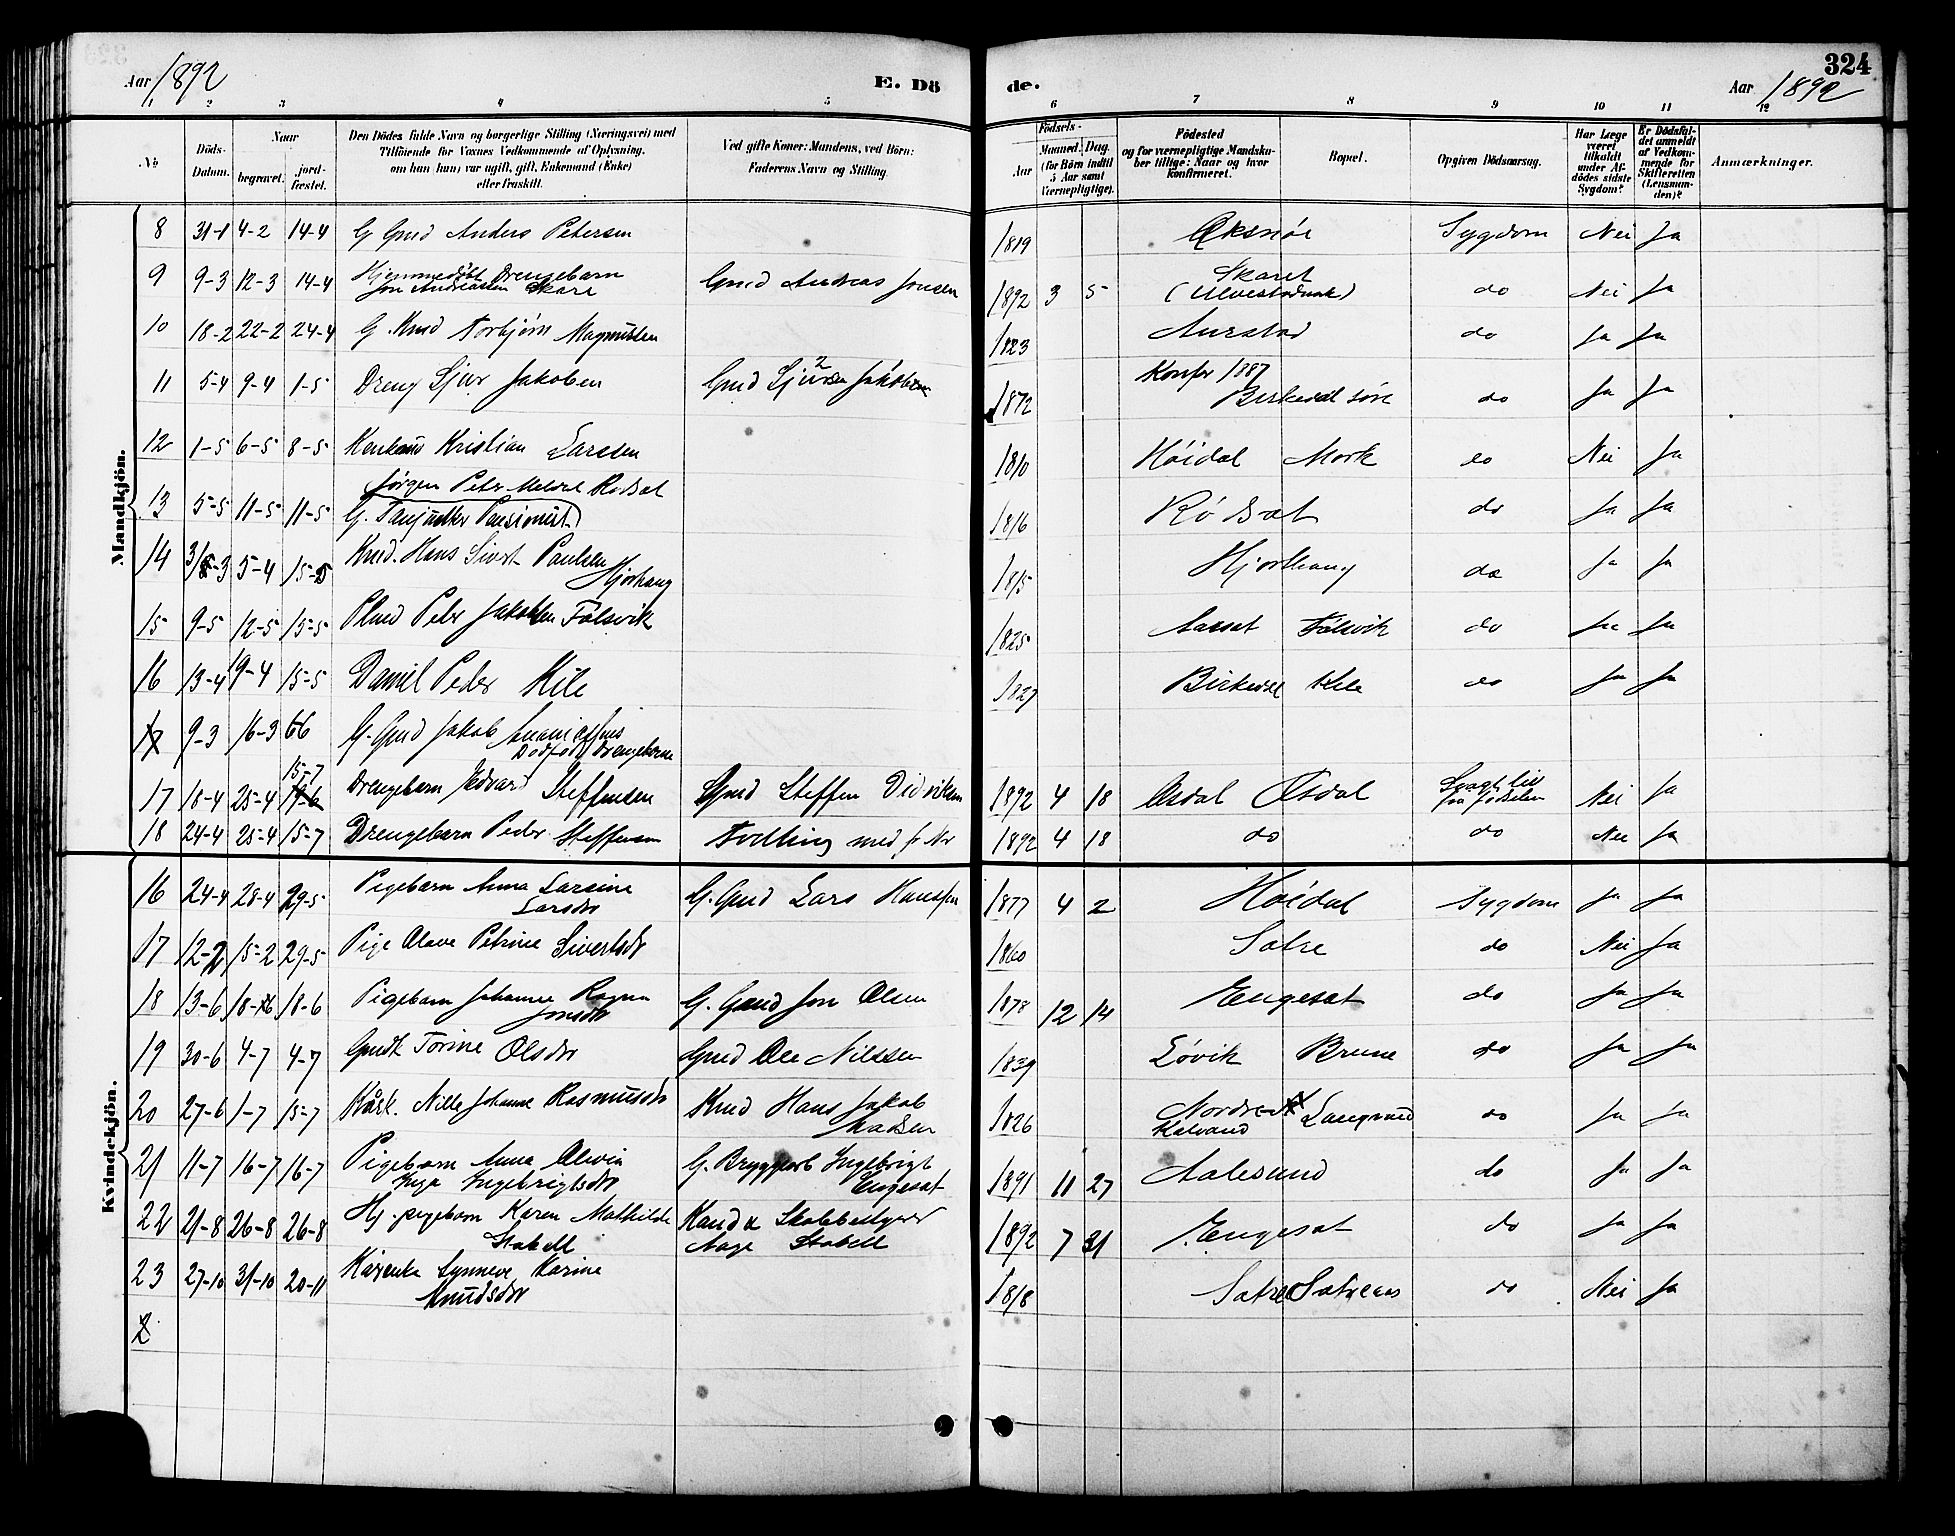 324
Aar 1892
E. Dö
de.
Aar 1892
1 2 3 4 5 6 7 8 9 10 11 12
No
Döds-Datum.
Naar
begravet.
jord-fæstet.
Den Dödes fulde Navn og borgerlige Stilling (Næringsvei) med
Tilföiende for Voxnes Vedkommende af Oplysning.
om han (hun) var ugift, gift, Enkemand (Enke)
eller fraskilt.
Ved gifte Koner: Mandens, ved Börn:
Faderens Navn og Stilling.
Födsels-
Aar
Maaned. Dag.
(for Börn indtil
5 Aar samt
Værnepligtige).
Födested
og for værnepligtige Mandsku-
ber tillige: Naar og hvor
konfirmeret.
Bopæl.
Opgiven Dödsaarsag.
Har Læge
været
tilkaldt
under Af-
dödes sidste
Sygdom?
Er Dödsfal-
det anmeldt
af Vedkom-
mende for
Skifteretten
(Lensman-
den)?
Anmærkninger.
Mandkjön.
8 31-1 4-2 14-4 G Gmd Anders Petersen 1819 Øksnör Sygdom Nei Ja
9 9-3 12-3 14-4 Hjemmedöbt Drengebarn
Jon Andreassen Skare Gmd Andreas Jonsen 1892 3 5 Skaret
do Nei Ja
10 18-2 22-2 24-4 G. Kmd Torbjörn Magnussen 1823 Aurstad do Ja Ja
11 5-4 9-4 1-5 Dreng Sjur Jakobsen Gmd Jakobsen 1872 Konfr 1887
Birkedal söre do Ja Ja
12 1-5 6-5 8-5 Kristian Larsen 1810 Höidal Mork do Nei Ja
13 5-5 11-5 11-5 Jörgen Peter Rödsæt
G. 1816 Rödsæt do Ja Ja
14 5-4 Kmd. Hans Sivert Paulsen
Hjorthaug 1815 Hjorthaug do Ja Ja
15 9-5 12-5 15-5 Peter Jakobsen Folsvik 1825 Aarsæt Folsvik do Ja Ja
16 13-4 19-4 15-5 Daniel Peder Kile 1827 Birkedal Kile do Ja Ja
17 9-3 16-3 66 G. Gmd Jakob
Dödfödt Drengebarn
15-7
17 18-4 25-4 19-6 Drengebarn Edvard Steffensen Gmd Steffen Didriksen 1892 4 18 Øsdal Øsdal
fra födselen Nei Ja
18 24-4 25-4 15-7 Drengebarn Peder Steffensen Tvilling med fr Nr 1892 4 18 do do Nei Ja
Kvindekjön.
16 24-4 28-4 29-5 Pigebarn Anna Larsine
Larsdtr G. Gmd Lars Hanssen 1877 4 2 Höidal Sygdom Ja Ja
17 12-2 15-2 29-5 Pige Olave Petrine Sivertsdtr 1860 Sætre do Nei Ja
18 13-6 18-6 18-6 Pigebarn Johanne Ragna
Jonsdtr G. Gmd Jon Olsen 1878 12 14 Engesæt do Ja Ja
19 30-6 4-7 4-7 Gmdk Torine Olsdtr Gmd Ole Nilssen 1839 Lövik Brune do Ja Ja
20 27-6 1-7 15-7 Nille Johanne Rasmusdtr Kmd Hans Jakob
Madsen 1826 Nordre
Kalvand Langvand do Ja Ja
21 11-7 16-7 16-7 Pigebarn Anna Olivia
Inga Ingebrigtsdtr G. Ingebrigt
Engesæt 1891 11 27 Aalesund do Ja Ja
22 21-8 26-8 26-8 Hj. pigebarn Karen Mathilde
Stabell
Aage Stabell 1892 7 31 Engesæt do Ja Ja
23 27-10 31-10 20-11 Synneve Karine
Knudsdtr 1818 Sætre do Nei Ja
2